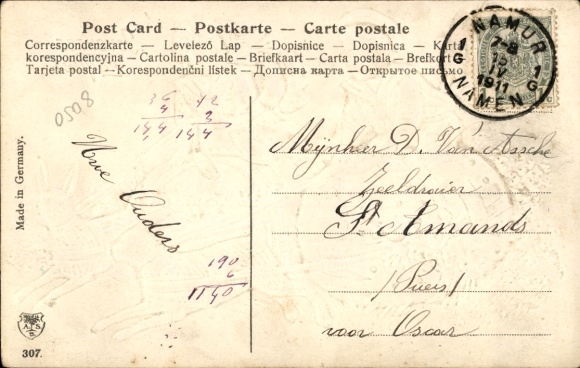 Post Card — Postkarte — Carte postale
Correspondenzkarte — Levelező Lap — Dopisnice — Dopisnica — Karta
korespondencyjna — Cartolina postale — Briefkaart — Carta postala — Brefkort
Tarjeta postal — Korespondenční lístek — Дописна карта — Открытое письмо
NAMUR
1 G
7-8
15
IV
1911
1 G
NAMEN
0508
36 42
4 3
144 144
Uwe Ouders
190
6
1140
Made in Germany.
Mijnheer D. Van Assche
Zeeldraier
St Amands
/Puers/
voor Oscar
A.S.
307.